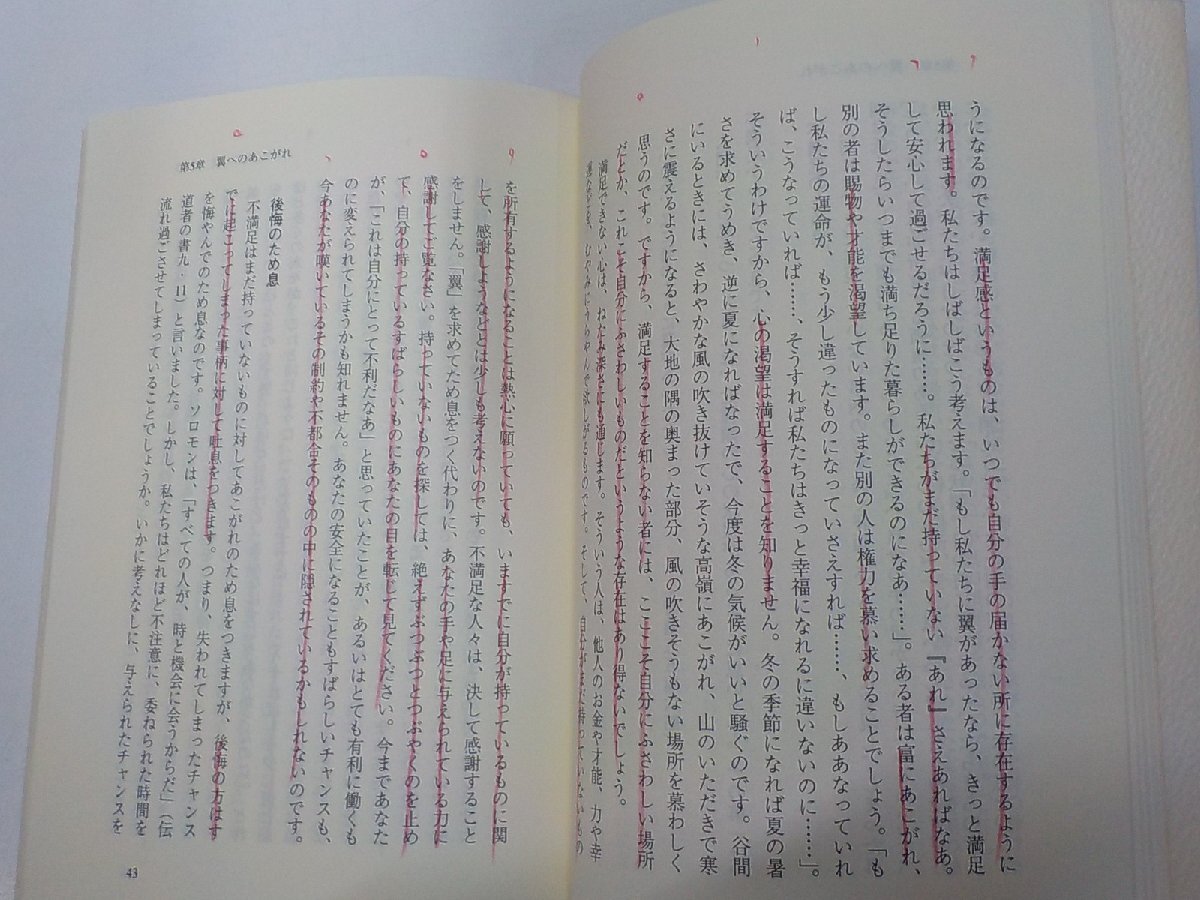 うになるのです。満足感というものは、いつでも自分の手の届かない所に存在するように
思われます。私たちはしばしばこう考えます。「もし私たちに翼があったなら、きっと満足
して安心して過ごせるだろうに……。私たちがまだ持っていない『あれ』さえあればなあ。
そうしたらいつまでも満ち足りた暮らしができるのになあ……」。ある者は富にあこがれ、
別の者は賜物や才能を渇望しています。また別の人は権力を慕い求めることでしょう。「も
し私たちの運命が、もう少し違ったものになっていさえすれば……、もしああなっていれ
ば、こうなっていれば……、そうすれば私たちはきっと幸福になれるに違いないのに……」。
そういうわけですから、心の渇望は満足することを知りません。冬の季節になれば夏の暑
さを求めてうめき、逆に夏になればなったで、今度は冬の気候がいいと騒ぐのです。谷間
にいるときには、さわやかな風の吹き抜けていそうな高嶺にあこがれ、山のいただきで寒
さに震えるようになると、大地の隅の奥まった部分、風の吹きそうもない場所を慕わしく
思うのです。ですから、満足することを知らない者には、ここそ自分にふさわしい場所
だとか、これこそ自分にふさわしいものだというような存在はあり得ないでしょう。
満足できない心は、ねたみ深さにも通じます。そういう人は、他人のお金や才能、力や幸
を所有するようになることは熱心に願っていても、いますでに自分が持っているものに関
して、感謝しようなどとは少しも考えないのです。不満足な人々は、決して感謝すること
をしません。「翼」を求めてため息をつく代わりに、あなたの手や足に与えられている力に
感謝してご覧なさい。持っていないものを探しては、絶えずぶつぶつとつぶやくのを止め
て、自分の持っているすばらしいものにあなたの目を転じて見てください。今まであなた
が、「これは自分にとって不利だなあ」と思っていたことが、あるいはとても有利に働くも
のに変えられてしまうかも知れません。あなたの安全になることもすばらしいチャンスも、
今あなたが嘆いているその制約や不都合そのものの中に隠されているかもしれないのです。
後悔のため息
不満足はまだ持っていないものに対してあこがれのため息をつきますが、後悔の方はす
でに起こってしまった事柄に対して吐息をつきます。つまり、失われてしまったチャンス
を悔やんでのため息なのです。ソロモンは、「すべての人が、時と機会に会うからだ」(伝
道者の書九・11)と言いました。しかし、私たちはどれほど不注意に、委ねられた時間を
流れ過ごさせてしまっていることでしょうか。いかに考えなしに、与えられたチャンスを
第5章 翼へのあこがれ
43